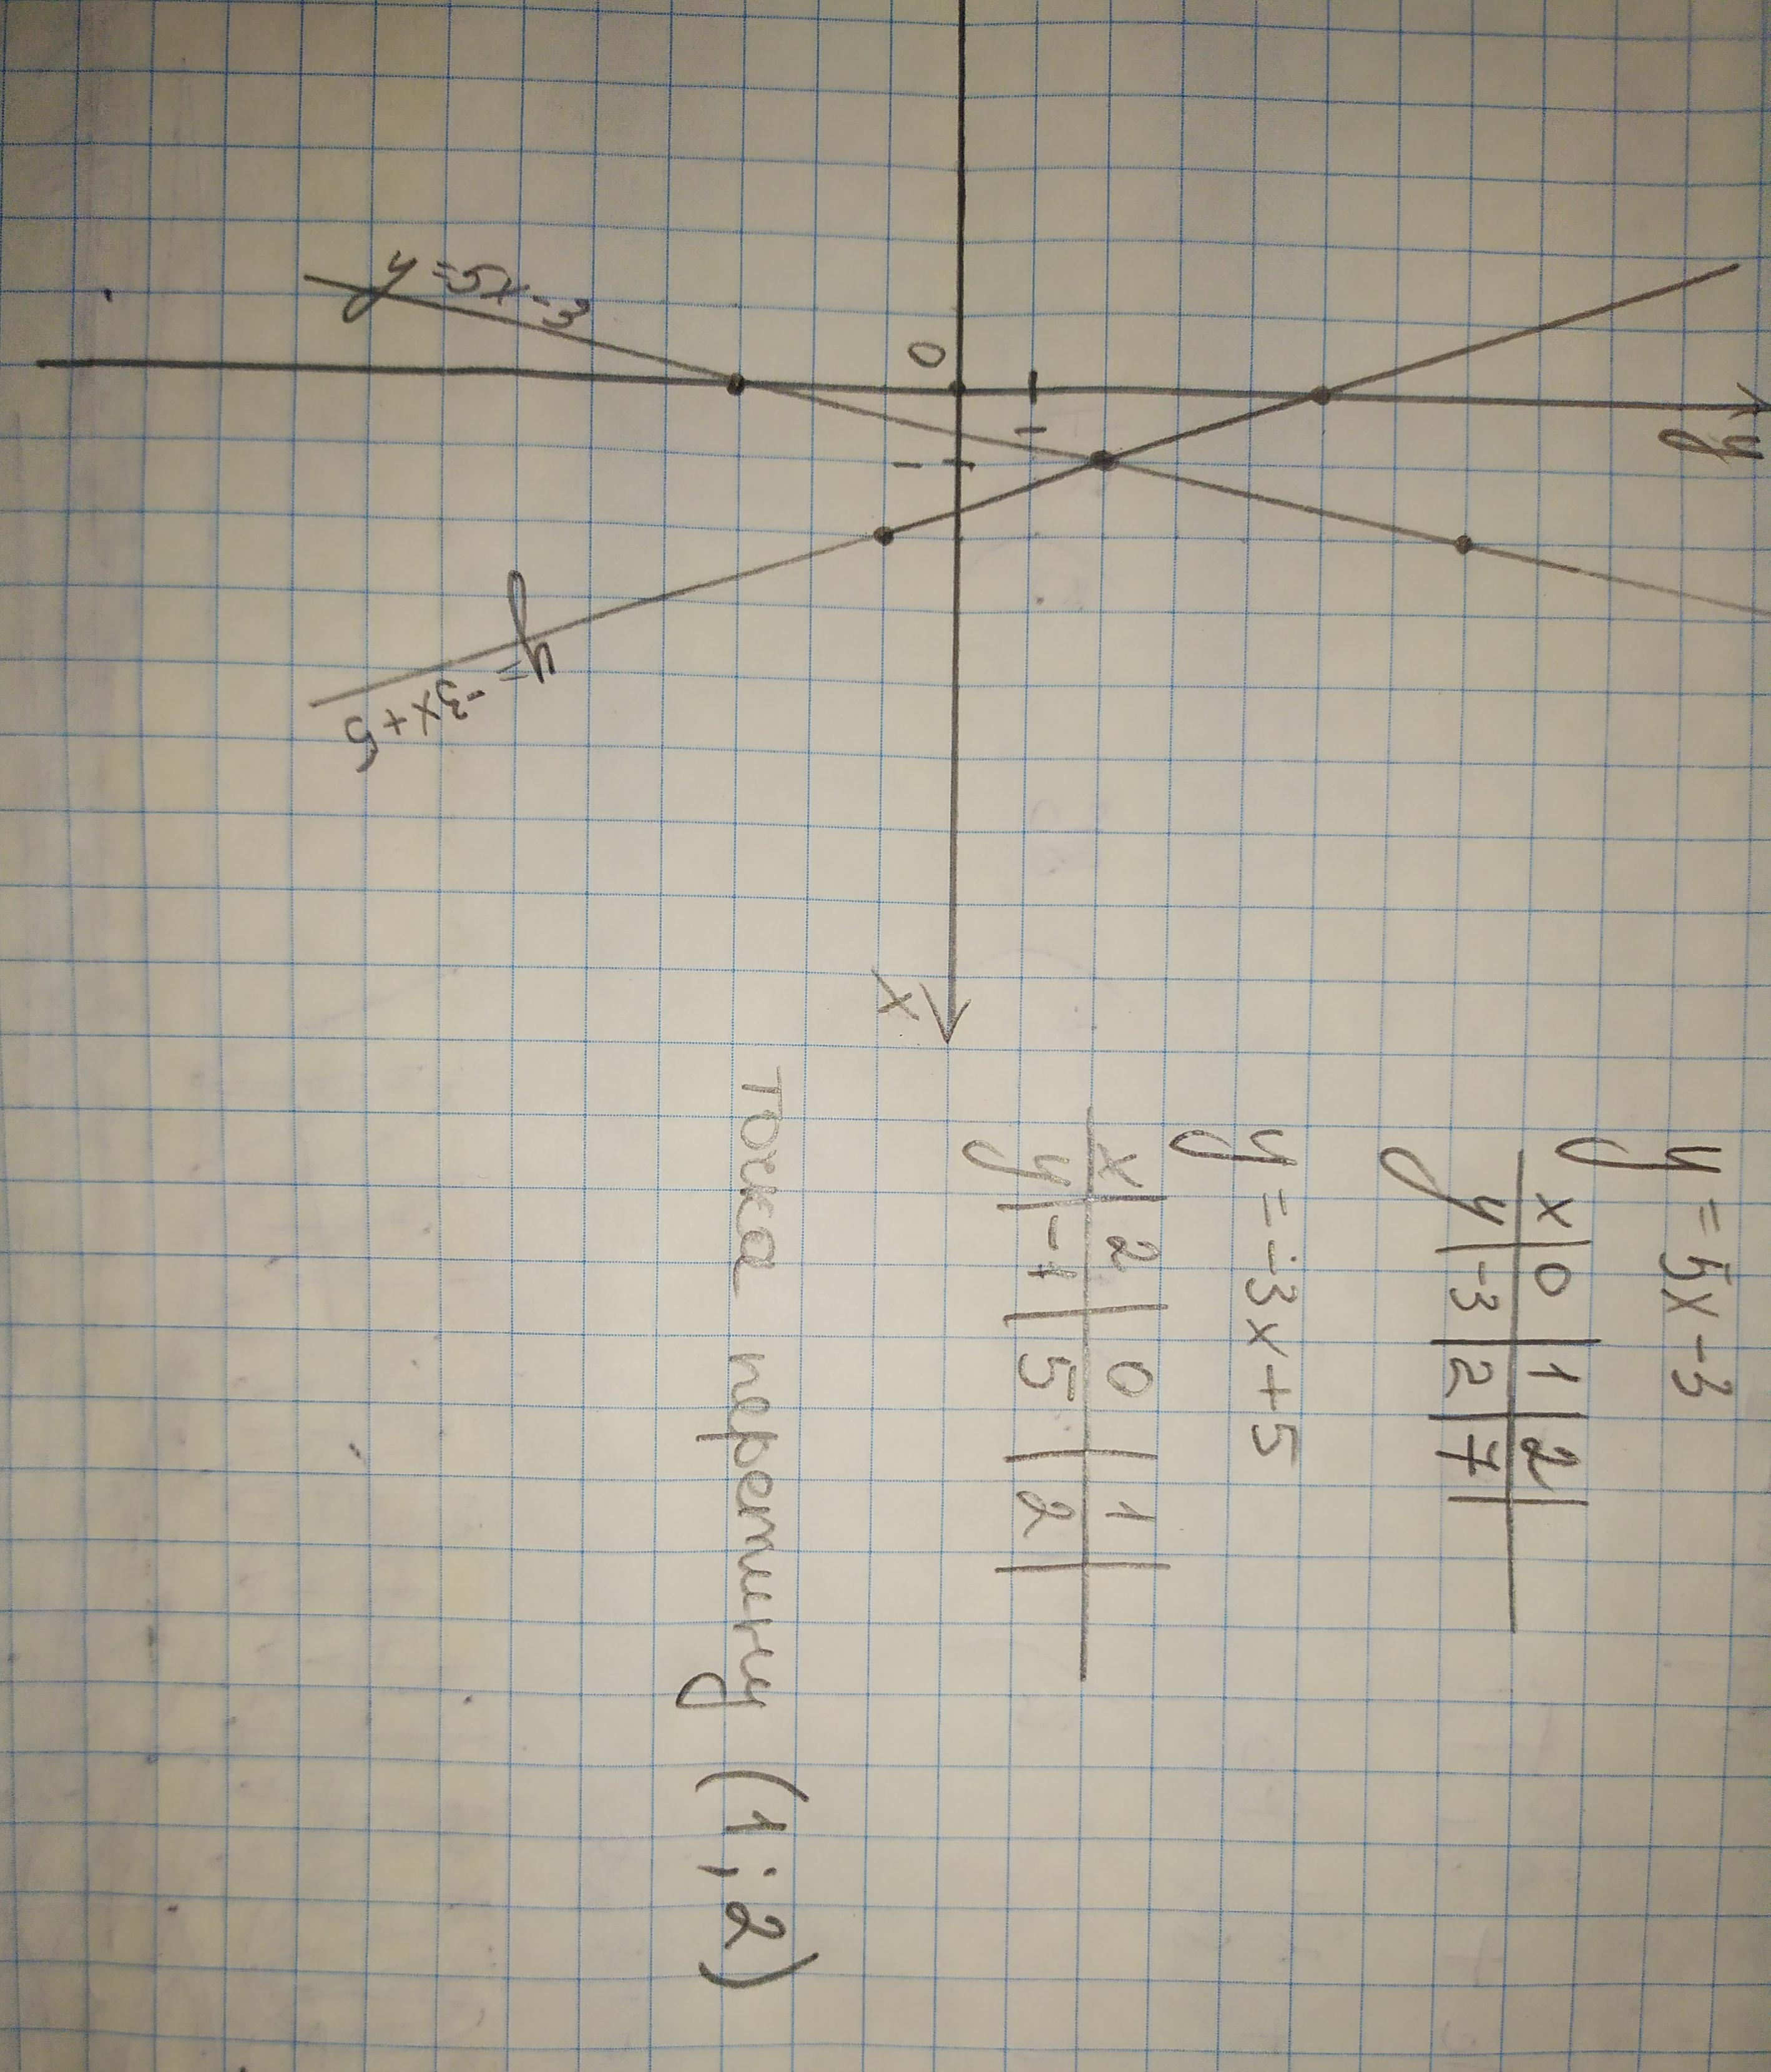 y = 5x - 3
x | 0 | 1 | 2 |
y | -3 | 2 | 7 |
y = -3x + 5
x | 2 | 0 | 1 |
y | -1 | 5 | 2 |
точка перетину (1; 2)
y
1
0
1
x
y = 5x - 3
y = -3x + 5